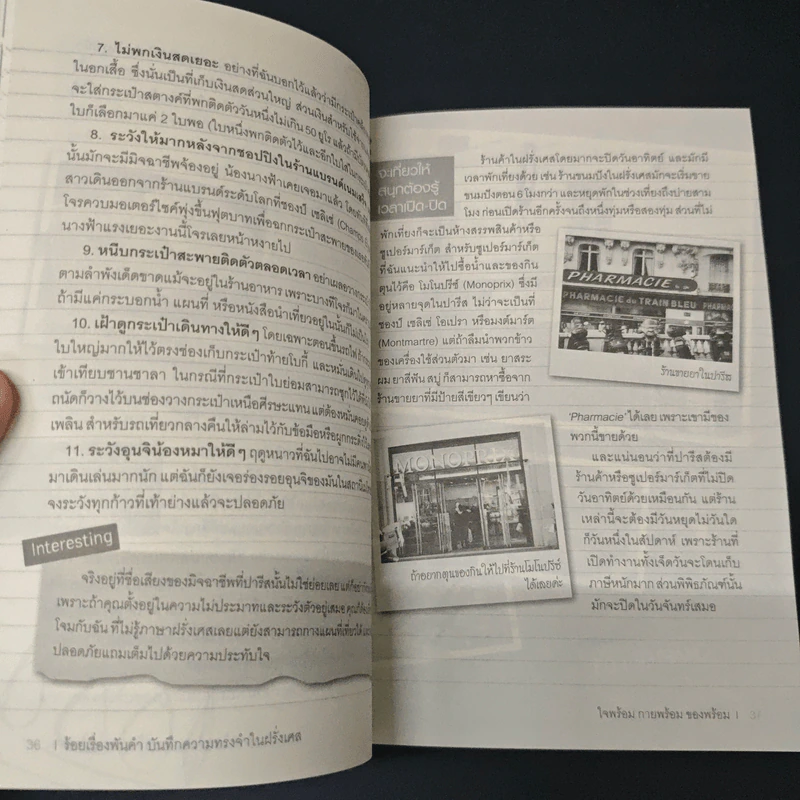 7. ไม่พกเงินสดเยอะ อย่างที่ฉันบอกไว้แล้วว่ามีกระเป๋า
ในอกเสื้อ ซึ่งนั่นเป็นที่เก็บเงินสดส่วนใหญ่ ส่วนเงินสำหรับใช้
จะใส่กระเป๋าสตางค์ที่พกติดตัววันหนึ่งไม่เกิน 50 ยูโร แล้ว
ใบก็เลือกมาแค่ 2 ใบพอ (ใบหนึ่งพกติดตัวไว้และอีกใบใส่
8. ระวังให้มากหลังจากชอปปิงในร้านแบรนด์เนม
นั้นมักจะมีมิจฉาชีพจ้องอยู่ น้องนางฟ้าเคยเจอมาแล้ว
สาวเดินออกจากร้านแบรนด์ระดับโลกที่ชองป์ เซลิเซ่ (Champs
โจรควบมอเตอร์ไซค์พุ่งขึ้นฟุตบาทเพื่อฉกกระเป๋าสะพาย
นางฟ้าแรงเยอะงานนี้โจรเลยหน้าหงายไป
9. หนีบกระเป๋าสะพายติดตัวตลอดเวลา อย่าเผลอวาง
ตามลำพังเด็ดขาดแม้จะอยู่ในร้านอาหาร เพราะบางทีโจรก็มา
ถ้ามีแค่กระบอกน้ำ แผนที่ หรือหนังสือนำเที่ยวอยู่ในนั้นก็ไม่เป็น
10. เฝ้าดูกระเป๋าเดินทางให้ดีๆ โดยเฉพาะตอนขึ้นรถไฟ
ใบใหญ่มากให้ไว้ตรงช่องเก็บกระเป๋าท้ายโบกี้ และหมั่นเดินไป
เข้าเทียบชานชาลา ในกรณีที่กระเป๋าใบย่อมสามารถซุกไว้ใต้
ถนัดก็วางไว้บนช่องวางกระเป๋าเหนือศีรษะแทน แต่ต้องหมั่นคอย
เพลิน สำหรับรถเที่ยวกลางคืนให้ล่ามไว้กับข้อมือหรือผูก
11. ระวังอุนจิน้องหมาให้ดีๆ ฤดูหนาวที่ฉันไปอาจไม่มี
มาเดินเล่นมากนัก แต่ฉันก็ยังเจอร่องรอยอุนจิของมันในสถานี
จงระวังทุกก้าวที่เท้าย่างแล้วจะปลอดภัย
Interesting
จริงอยู่ที่ชื่อเสียงของมิจฉาชีพที่ปารีสนั้นไม่ใช่ย่อยเลย
เพราะถ้าคุณตั้งอยู่ในความไม่ประมาทและระวังตัวอยู่เสมอ
โจมกับฉัน ที่ไม่รู้ภาษาฝรั่งเศสเลยแต่ยังสามารถกางแผนที่เที่ยวได้
ปลอดภัยแถมเต็มไปด้วยความประทับใจ
36 | ร้อยเรื่องพันคำ บันทึกความทรงจำในฝรั่งเศส
จะเที่ยวให้
สนุกต้องรู้
เวลาเปิด-ปิด
ร้านค้าในฝรั่งเศสโดยมากจะปิดวันอาทิตย์ และมักมี
เวลาพักเที่ยงด้วย เช่น ร้านขนมปังในฝรั่งเศสมักจะเริ่มขาย
ขนมปังตอน 6 โมงกว่า และหยุดพักในช่วงเที่ยงถึงบ่ายสาม
โมง ก่อนเปิดร้านอีกครั้งจนถึงหนึ่งทุ่มหรือสองทุ่ม ส่วนที่ไม่
พักเที่ยงก็จะเป็นห้างสรรพสินค้าหรือ
ซูเปอร์มาร์เก็ต สำหรับซูเปอร์มาร์เก็ต
ที่ฉันแนะนำให้ไปซื้อน้ำและของกิน
ตุนไว้คือ โมโนปรีซ์ (Monoprix) ซึ่งมี
อยู่หลายจุดในปารีส ไม่ว่าจะเป็นที่
ชองป์ เซลิเซ่ โอเปรา หรือมงต์มาร์ต
(Montmartre) แต่ถ้าลืมนำพวกข้าว
ของเครื่องใช้ส่วนตัวมา เช่น ยาสระ
ผม ยาสีฟัน สบู่ ก็สามารถหาซื้อจาก
ร้านขายยาที่มีป้ายสีเขียวๆ เขียนว่า
PHARMACIE
PHARMACIE du TRAIN BLEU PHARMACIE
ร้านขายยาในปารีส
MONOPRIX
ถ้าอยากตุนของกินให้ไปที่ร้านโมโนปรีซ์
ได้เลยค่ะ
'Pharmacie' ได้เลย เพราะเขามีของ
พวกนี้ขายด้วย
และแน่นอนว่าที่ปารีสต้องมี
ร้านค้าหรือซูเปอร์มาร์เก็ตที่ไม่ปิด
วันอาทิตย์ด้วยเหมือนกัน แต่ร้าน
เหล่านี้จะต้องมีวันหยุดไม่วันใด
ก็วันหนึ่งในสัปดาห์ เพราะร้านที่
เปิดทำงานทั้งเจ็ดวันจะโดนเก็บ
ภาษีหนักมาก ส่วนพิพิธภัณฑ์นั้น
มักจะปิดในวันจันทร์เสมอ
ใจพร้อม กายพร้อม ของพร้อม | 37